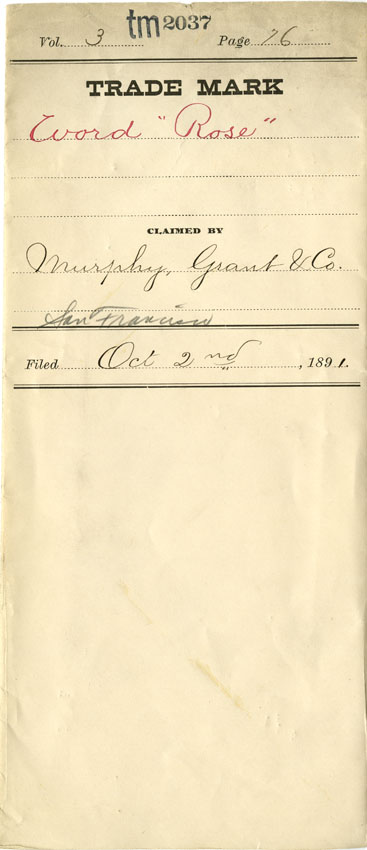 tm 2037
Vol. 3 Page 76
TRADE MARK
Word "Rose"
CLAIMED BY
Murphy, Grant & Co.
San Francisco
Filed Oct 2nd, 1891.